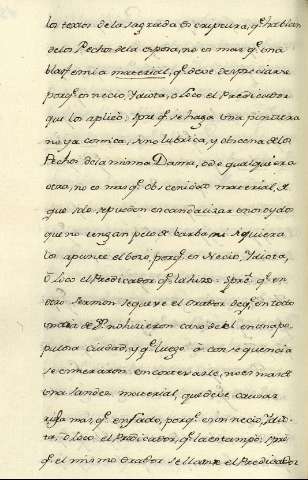 los textos de la sagrada Escriptura, qᵉ hablan
de los Pechos de la esposa, no es mas qᵉ una
blasfemia material, qᵉ deve despreciarse
porqᵉ es necio, Ydiota, o loco el Predicador
que los aplicò; Spreᵉ qᵉ se haga una pintura
no ya comica, sino lubrica, y obscena de los
Pechos de la misma Dama, o de qualquiera
otra, no es mas qᵉ obscenidad material, de
que solo se pueden escandalizar
que no tengan pelo de barba, ni siquiera
les apunte el bozo, porqᵉ es Necio, Ydiota,
ò loco el Predicador qᵉ la hizo. Spreᵉ qᵉ en
otro Sermon se queje el orador de qᵉ en todo
un dia de no hicieron caso de el en una po
pulosa ciudad, y qᵉ luego à consequencia
se esmeraron en cortejarle, no es mas de
una sandez material, que deve causar
risa mas qᵉ enfado, porqᵉ es un necio, Ydio
ta, ò loco el Predicador, qᵉ la estampò; spreᵉ
qᵉ el mismo orador se llame el Predicador